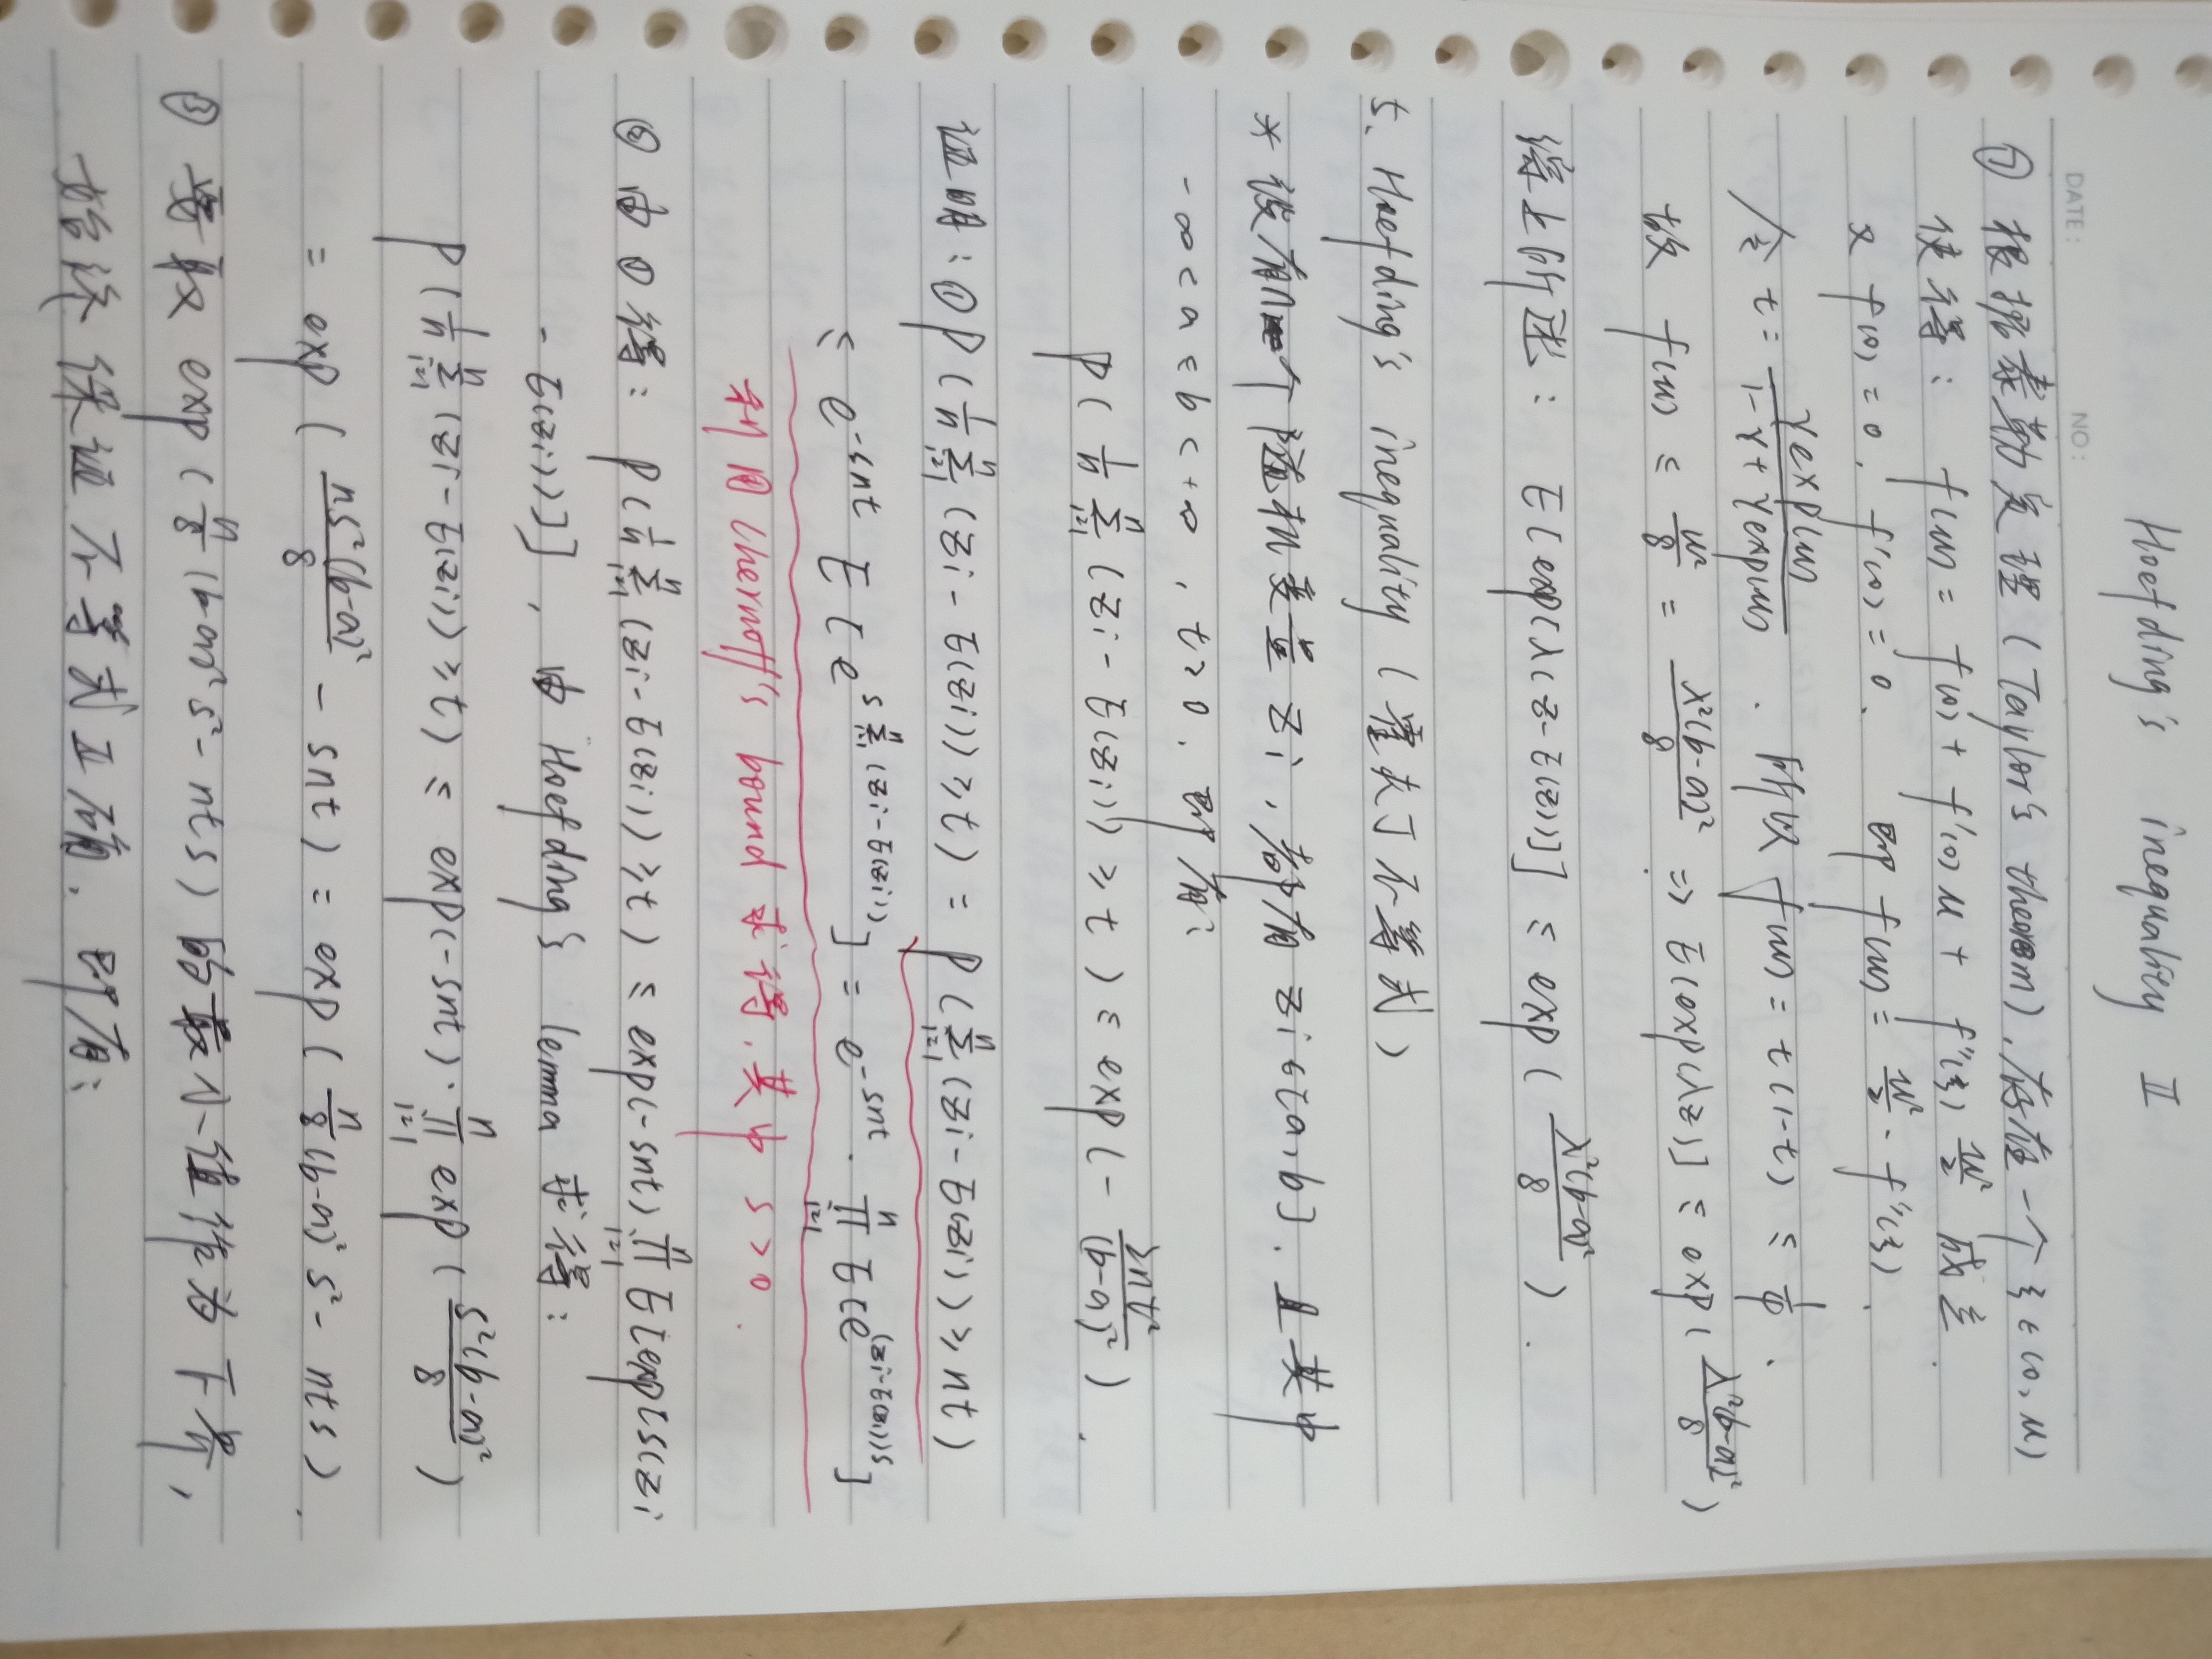 Hoefding's inequality II
DATE: NO:
⑦ 根据泰勒定理 (Taylor's theorem), 存在一个 ξ ∈ (0, u)
使得: f(u) = f(0) + f'(0) u + f''(ξ) u²/2 成立.
又 f(0) = 0, f'(0) = 0. 即 f(u) = u²/2 · f''(ξ).
令 t = γexp(u) / (1-γ+γexp(u)). 所以 f(u) = t(1-t) ≤ 1/4.
故 f(u) ≤ u²/8 = λ²(b-a)²/8. => E[exp(λz)] ≤ exp(λ²(b-a)²/8)
综上所述: E[exp[λ(z-E(z))]] ≤ exp(λ²(b-a)²/8).
5. Hoefding's inequality (霍夫丁不等式)
* 设有n个随机变量 zi, 都有 zi ∈ [a, b]. 且其中
-∞ < a ≤ b < +∞, t > 0. 即有:
P(1/n Σ_{i=1}^n (zi - E(zi)) ≥ t) ≤ exp(- 2nt²/(b-a)²).
证明: ① P(1/n Σ_{i=1}^n (zi - E(zi)) ≥ t) = P(Σ_{i=1}^n (zi - E(zi)) ≥ nt)
≤ e^{-snt} E[e^{s Σ_{i=1}^n (zi-E(zi))}] = e^{-snt} · Π_{i=1}^n E[e^{(zi-E(zi))s}]
利用 Chernoff's bound 求得, 其中 s > 0.
② 由 ① 得: P(1/n Σ_{i=1}^n (zi - E(zi)) ≥ t) ≤ exp(-snt) Π_{i=1}^n E[exp[s(zi
- E(zi))]], 由 Hoefding's lemma 求得:
P(1/n Σ_{i=1}^n (zi - E(zi)) ≥ t) ≤ exp(-snt) · Π_{i=1}^n exp(s²(b-a)²/8)
= exp(ns²(b-a)²/8 - snt) = exp(n/8 (b-a)² s² - nts).
③ 要取 exp(n/8 (b-a)² s² - nts) 的最小值作为下界,
始终保证不等式正确. 即有: